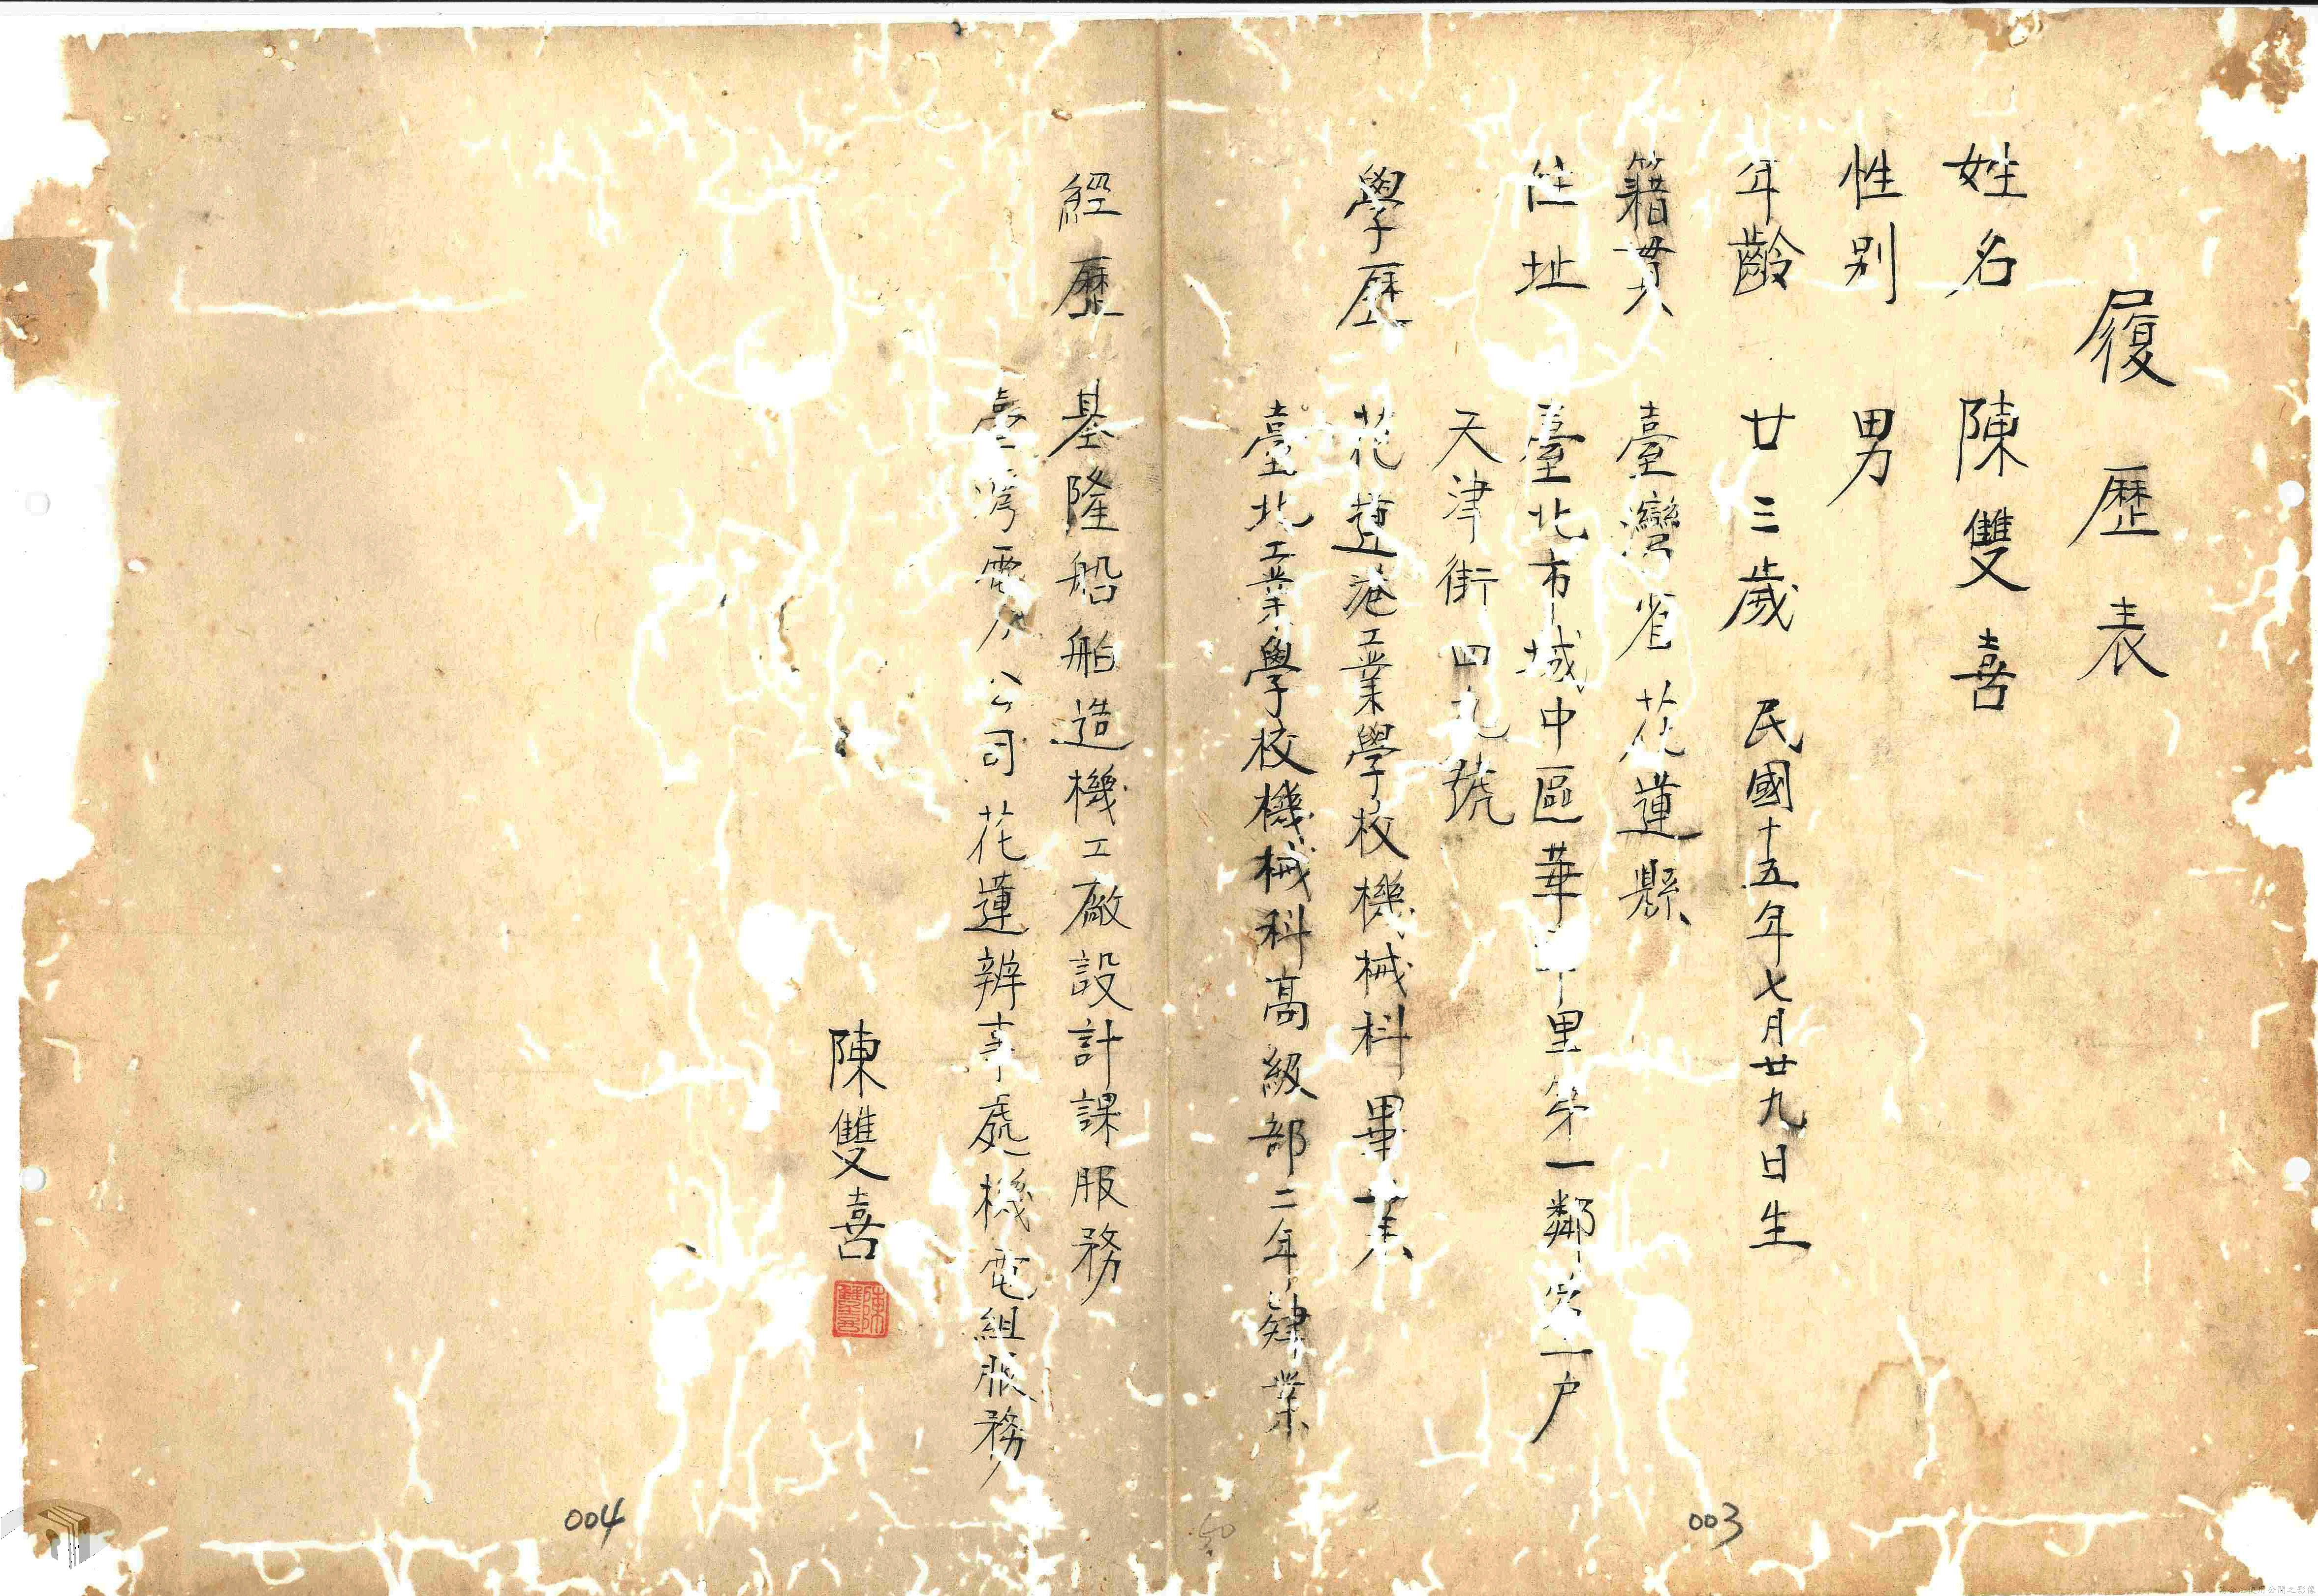 履歷表
姓名 陳雙喜
性別 男
年齡 廿三歲 民國十五年七月廿九日生
籍貫 臺灣省花蓮縣
住址 臺北市城中區華 里第一鄰 一户
天津街四九號
學歷 花蓮港工業學校機械科畢業
臺北工業學校機械科高級部二年肄業
經歷 基隆船舶造機工廠設計課服務
臺灣電力公司花蓮辦事處機電組服務
陳雙喜
陳雙喜
003
004
50